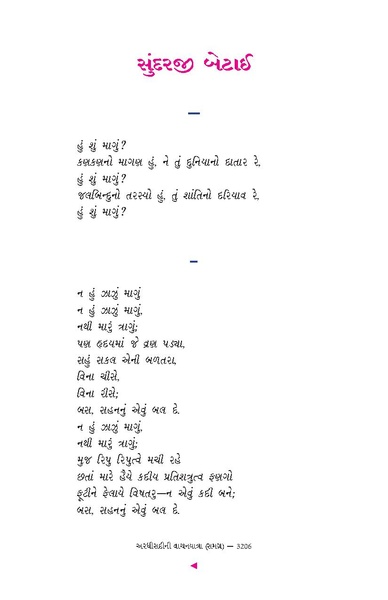 સુંદરજી બેટાઈ
–
હું શું માગું?
કણકણનો માગણ હું, ને તું દુનિયાનો દાતાર રે,
હું શું માગું?
જલબિન્દુનો તરસ્યો હું, તું શાંતિનો દરિયાવ રે,
હું શું માગું?
–
ન હું ઝાઝું માગું
ન હું ઝાઝું માગું,
નથી મારું ત્રાગું;
પણ હૃદયમાં જે વ્રણ પડ્યા,
સહું સકલ એની બળતરા,
વિના ચીસે,
વિના રીસે;
બસ, સહનનું એવું બલ દે.
ન હું ઝાઝું માગું,
નથી મારું ત્રાગું;
મુજ રિપુ રિપુત્વે મચી રહે
છતાં મારે હૈયે કદીય પ્રતિશત્રુત્વ ફણગો
ફૂટીને ફેલાયે વિષતરુ—ન એવું કદી બને;
બસ, સહનનું એવું બલ દે.
અરધીસદીની વાચનયાત્રા (સમગ્ર) — 3206
◄